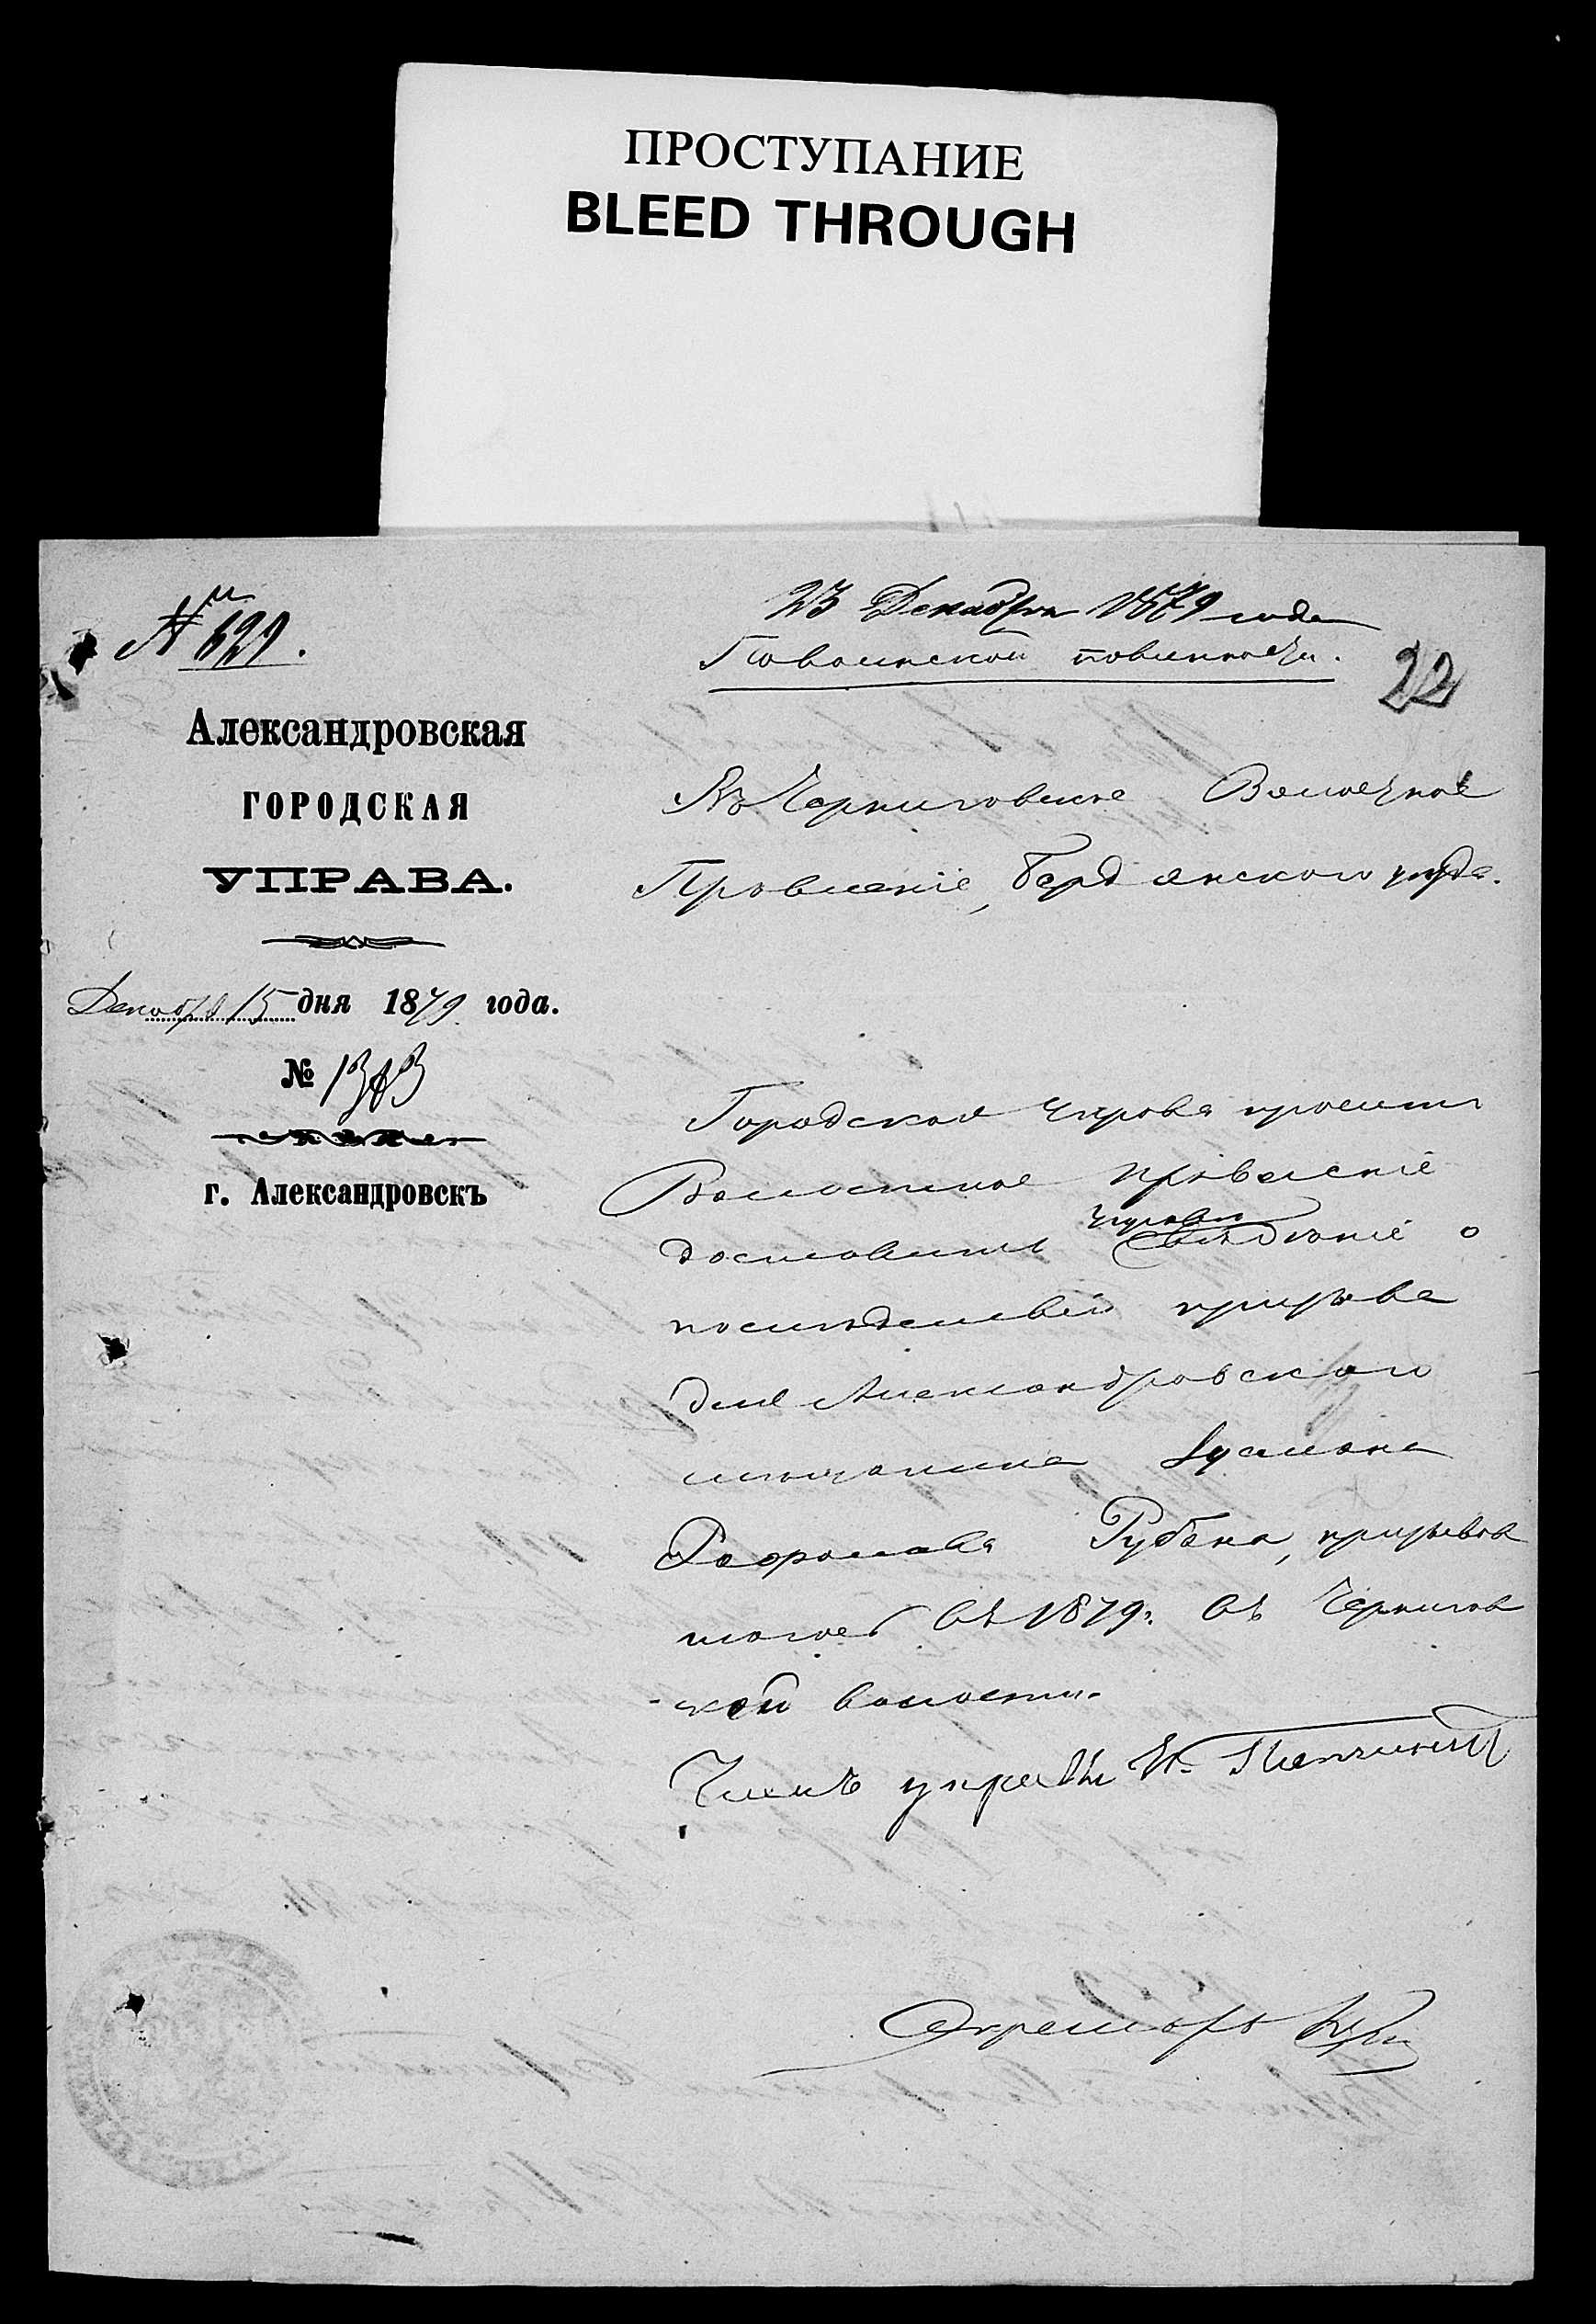 ПРОСТУПАНИЕ
BLEED THROUGH
23 Декабря 1879 года
По воинской повинности.
22
№ 629.
Александровская
ГОРОДСКАЯ
УПРАВА.
Декабря 15 дня 1879 года.
№
г. Александровскъ
Въ Черниговское Волостное
Правленіе, Бердянского уезда.
Городская Управа просить
Волостное Правленіе
доставить Управѣ свѣдѣніе о
последствіи призыва
для Александровского
мещанина
Рубана, призывав
шагося въ 1879 г. въ Чернигов
ской волости.
Членъ управы
Секретарь